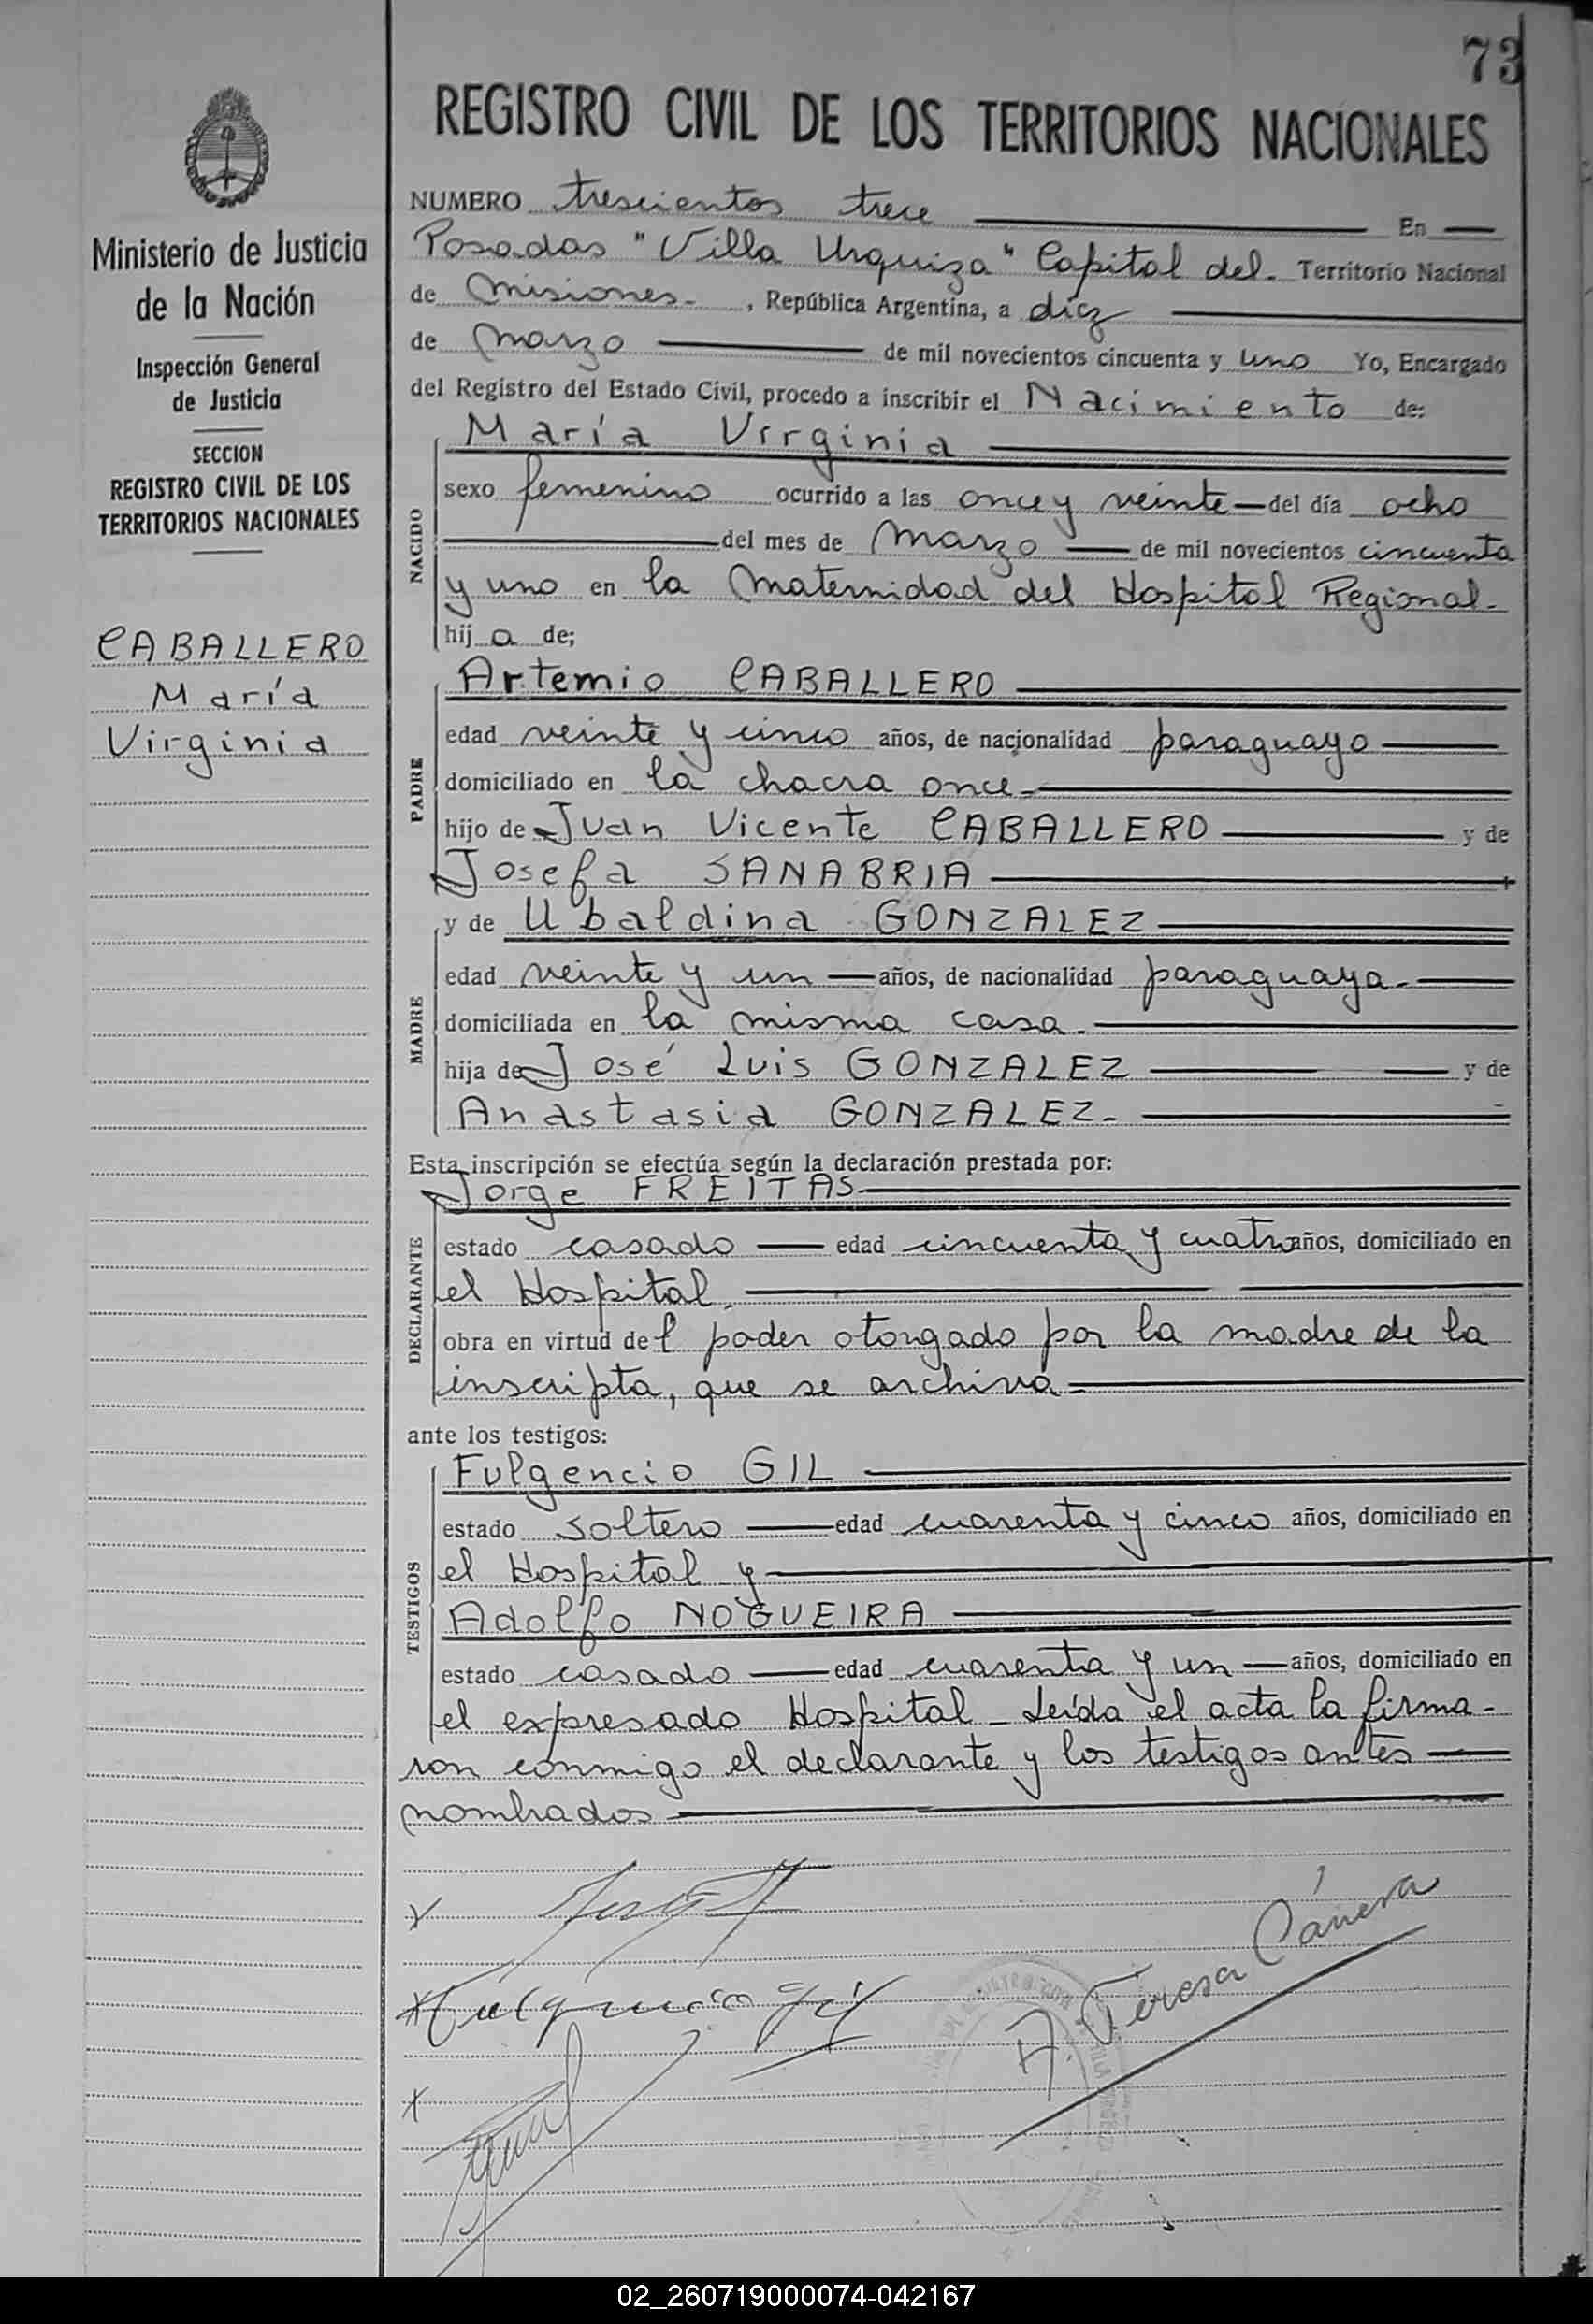 73
REGISTRO CIVIL DE LOS TERRITORIOS NACIONALES
Ministerio de Justicia
de la Nación
Inspección General
de Justicia
SECCION
REGISTRO CIVIL DE LOS
TERRITORIOS NACIONALES
CABALLERO
María
Virginia
NUMERO trescientos trece En
Posadas "Villa Urquiza" Capital del. Territorio Nacional
de Misiones- , República Argentina, a diez
de Marzo de mil novecientos cincuenta y uno Yo, Encargado
del Registro del Estado Civil, procedo a inscribir el Nacimiento de:
NACIDO
María Virginia
sexo femenino ocurrido a las once y veinte — del día ocho
del mes de Marzo — de mil novecientos cincuenta
y uno en la Maternidad del Hospital Regional-
hij a de;
PADRE
Artemio CABALLERO
edad veinte y cinco años, de nacionalidad paraguayo
domiciliado en la chacra once-
hijo de Juan Vicente CABALLERO y de
Josefa SANABRIA
MADRE
y de Ubaldina GONZALEZ
edad veinte y un — años, de nacionalidad paraguaya.-
domiciliada en la misma casa.-
hija de José Luis GONZALEZ y de
Anastasia GONZALEZ-
Esta inscripción se efectúa según la declaración prestada por:
DECLARANTE
Jorge FREITAS
estado casado — edad cincuenta y cuatro años, domiciliado en
el Hospital
obra en virtud del poder otorgado por la madre de la
inscripta, que se archiva-
ante los testigos:
TESTIGOS
Fulgencio GIL
estado soltero — edad cuarenta y cinco años, domiciliado en
el Hospital y
Adolfo NOGUEIRA
estado casado — edad cuarenta y un — años, domiciliado en
el expresado Hospital - Leída el acta la firma-
ron conmigo el declarante y los testigos antes —
nombrados
Fulgencio Gil
A. Teresa
02_260719000074-042167